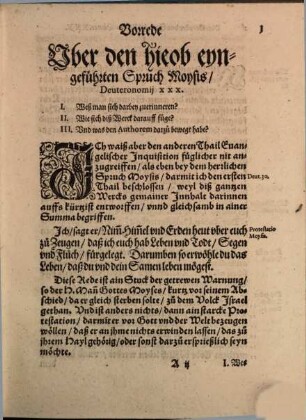 Vorrede
3
Uber den hieob eyn-
geführten Spruch Moysis/
Deuteronomij xxx.
I. Weß man sich darbey zuerinneren?
II. Wie sich diß Werck darauff füge?
III. Und was den Authorem darzů bewegt habe?
Ich waiß aber den anderen Thail Euan-
gelischer Inquisition füglicher nit an-
zugreiffen / als eben bey dem herrlichen
Spruch Moysis / darmit ich den ersten
Deut. 30.
Thail beschlossen / weyl diß gantzen
Wercks gemainer Innhalt darinnen
auffs kürtzist entworffen / unnd gleichsamb in ainer
Summa begriffen.
Ich / sagt er / Nim̃ Him̃el und Erden heut uber euch
zů Zeugen / daß ich euch hab Leben und Todt / Segen
Protestatio
Moysis.
und Flůch / fürgelegt. Darumben so erwöhle du das
Leben / daß du und dein Samen leben mögest.
Diese Rede ist ain Stuck der getrewen Warnung /
so der H. Man̄ Gottes Moyses / kurtz vor seinem Ab-
schied / da er gleich sterben solte / zu dem Volck Israel
gethan. Und ist anders nichts / dann ain starcke Pro-
testation / darmit er vor Gott und der Welt bezeugen
wöllen / daß er an jhme nichts erwinden lassen / das zů
jhrem Hayl gehörig / oder sonst darzů ersprießlich seyn
möchte.
A ij
I. Wes